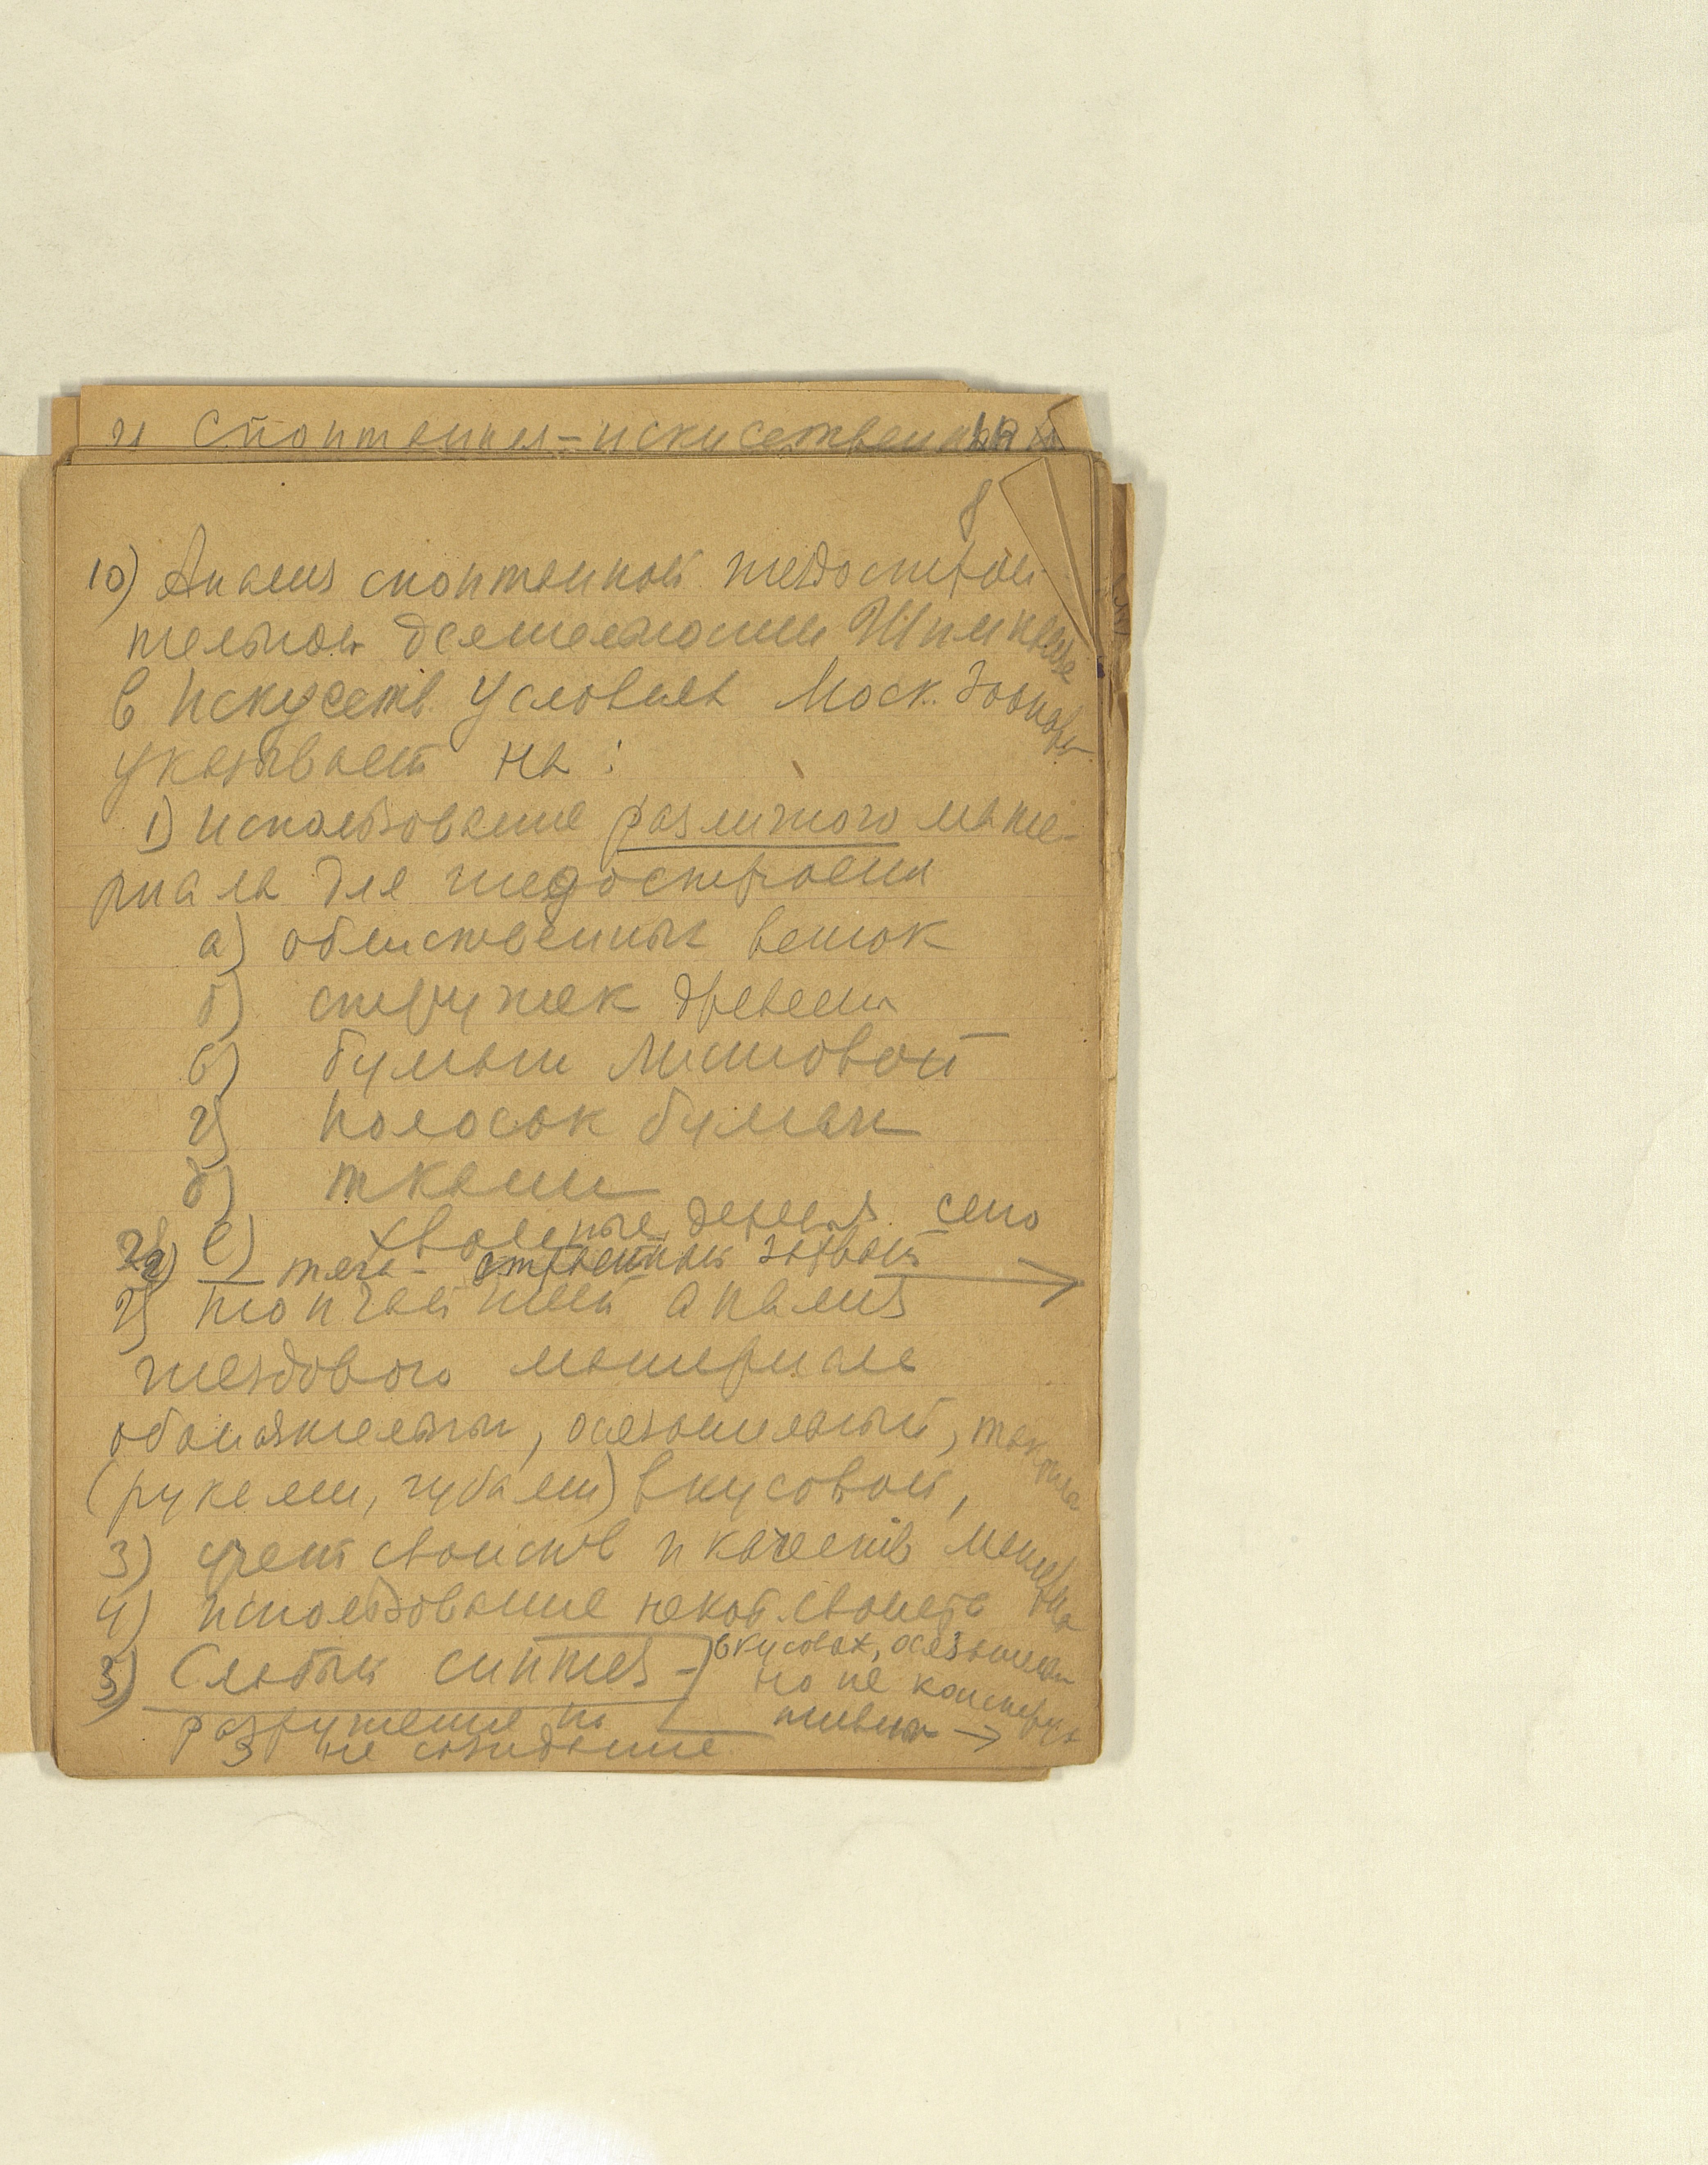 и Спонтанная-искусственная
8
10) Анализ спонтанной гнездострои
тельной деятельности Шимпанзе
в Искусств. условиях Моск. Зоопарк
указывает на:
1) использование различного мате-
риала для гнездостроения
а) облиственных веток
б) стружек древесн
в) бумаги листовой
г) полосок бумаги
д) ткани
е) хвоенные деревья сено
2)
2) тончайший анализ
гнездового материала
обонятельный, осязательный,
(руками, губами) вкусовой,
3) учет свойств и качеств материала
4) использование некот. свойств
5) Слабый синтез -
вкусовых, осязательн
но не конструк
тивных →
разрушение но
не созидание